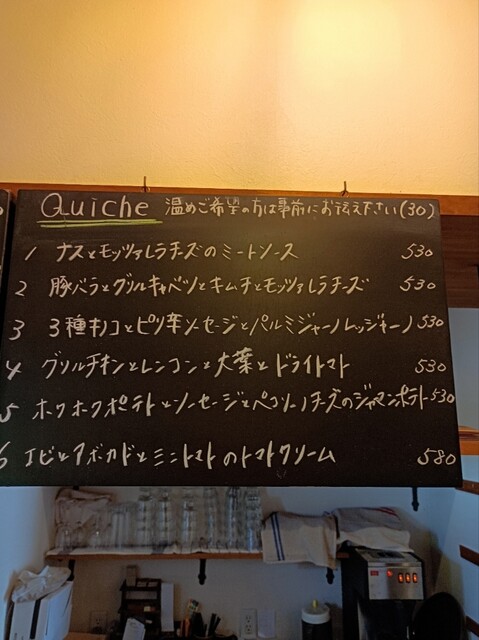 Quiche 温めご希望の方は事前にお伝え下さい(30)
1 ナスとモッツァレラチーズのミートソース 530
2 豚バラとグリルキャベツとキムチとモッツァレラチーズ 530
3 3種キノコとピリ辛ソーセージとパルミジャーノレッジャーノ 530
4 グリルチキンとレンコンと大葉とドライトマト 530
5 ホクホクポテトとソーセージとペコリーノチーズのジャーマンポテト 530
6 エビとアボカドとミニトマトのトマトクリーム 580